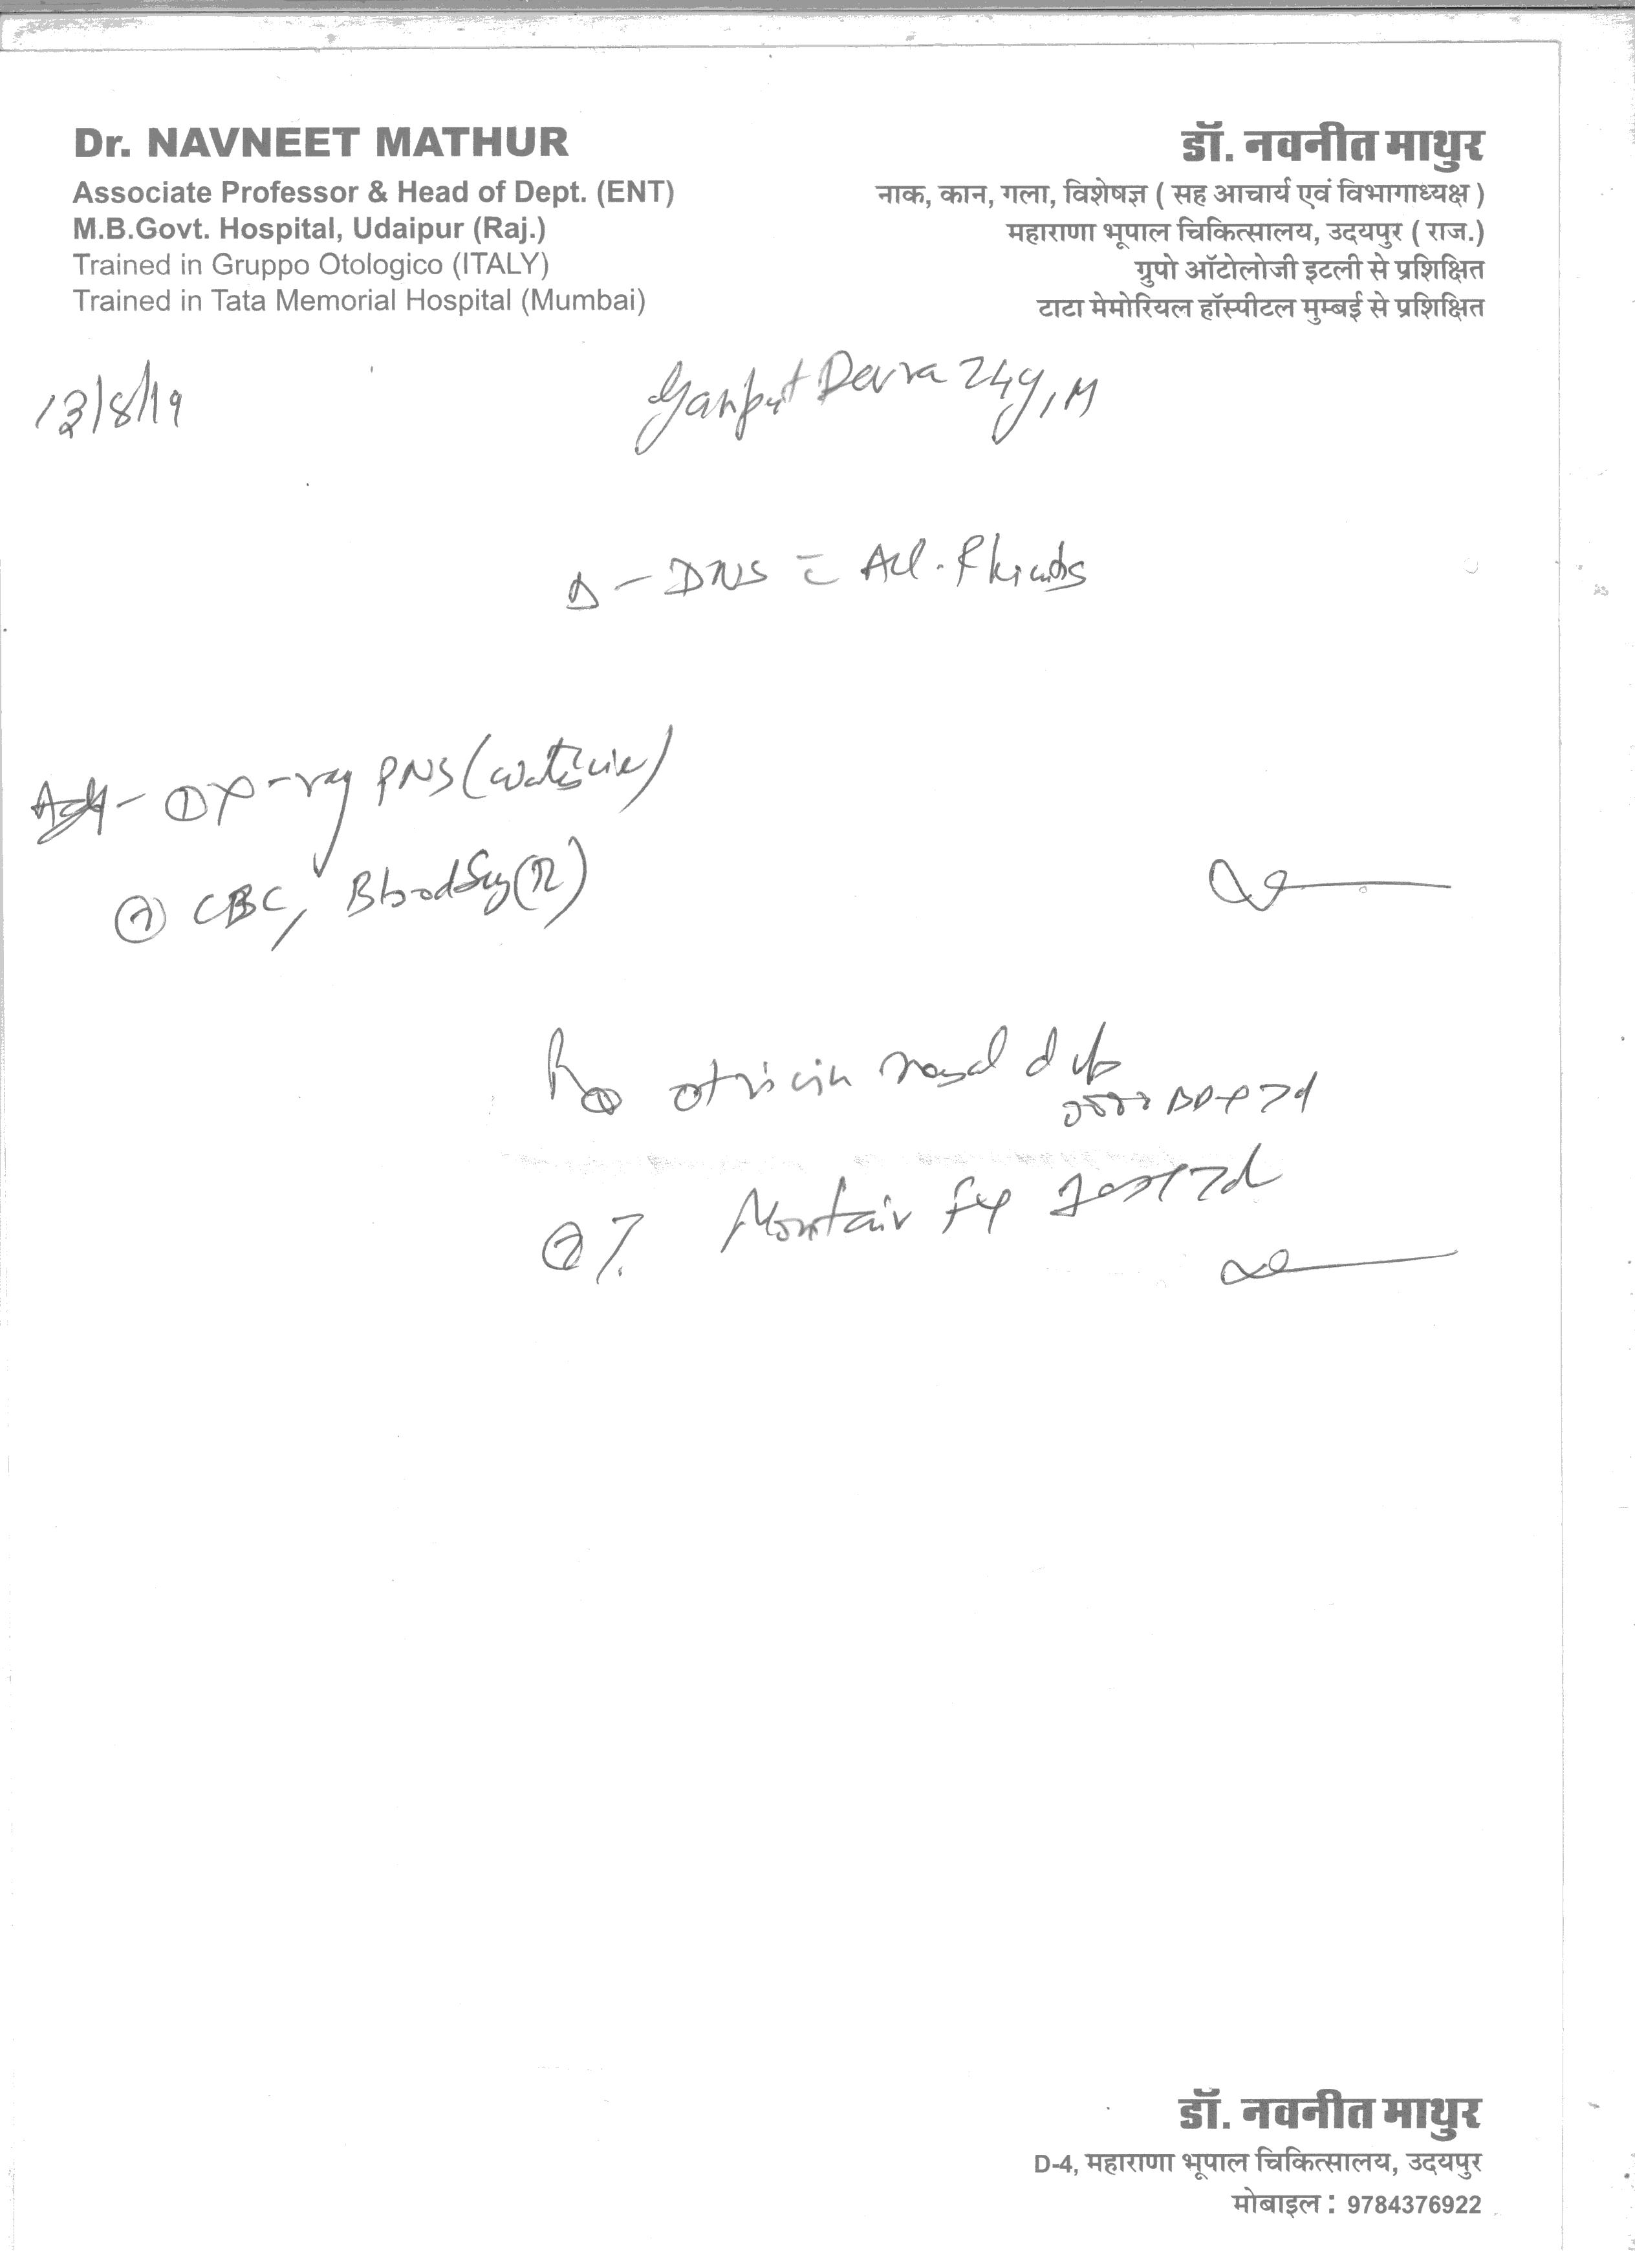 Dr. NAVNEET MATHUR
Associate Professor & Head of Dept. (ENT)
M.B.Govt. Hospital, Udaipur (Raj.)
Trained in Gruppo Otologico (ITALY)
Trained in Tata Memorial Hospital (Mumbai)
डॉ. नवनीत माथुर
नाक, कान, गला, विशेषज्ञ ( सह आचार्य एवं विभागाध्यक्ष )
महाराणा भूपाल चिकित्सालय, उदयपुर ( राज.)
ग्रुपो ऑटोलोजी इटली से प्रशिक्षित
टाटा मेमोरियल हॉस्पीटल मुम्बई से प्रशिक्षित
13/8/19
Ganpat Devra 24y, M
Δ - DNS c̄ All. Rhinitis
Adv - ① X-ray PNS (
② CBC, Blood Sug (R)
Rx ① otrivin nasal
BD x 7d
② T. Montair Fx x 7d
डॉ. नवनीत माथुर
D-4, महाराणा भूपाल चिकित्सालय, उदयपुर
मोबाइल : 9784376922